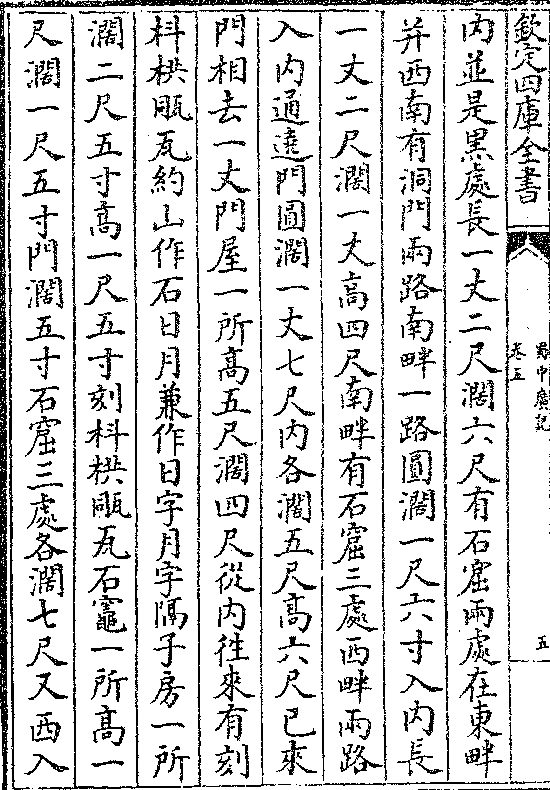 欽定四庫全書
蜀中廣記
卷五
五
內並是黑處長一丈二尺濶六尺有石窟兩處在東畔
并西南有洞門兩路南畔一路圓濶一尺六寸入內長
一丈二尺濶一丈高四尺南畔有石窟三處西畔兩路
入內通遶門圓濶一丈七尺內各濶五尺高六尺已來
門相去一丈門屋一所高五尺濶四尺從內往來有刻
枓栱𤬪瓦約山作石日月兼作日字月字隔子房一所
濶二尺五寸高一尺五寸刻枓栱𤬪瓦石竈一所高一
尺濶一尺五寸門濶五寸石窟三處各濶七尺又西入